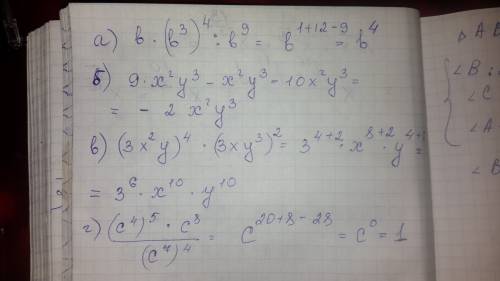 а) b · (b³)⁴ : b⁹ = b¹⁺¹²⁻⁹ = b⁴
б) 9 · x²y³ - x²y³ - 10x²y³ =
= - 2 x²y³
в) (3x²y)⁴ · (3xy³)² = 3⁴⁺² · x⁸⁺² · y⁴⁺
= 3⁶ · x¹⁰ · y¹⁰
г) (c⁴)⁵ · c⁸ / (c⁷)⁴ = c²⁰⁺⁸⁻²⁸ = c⁰ = 1
△ AB
∠B
∠C
∠A
∠B